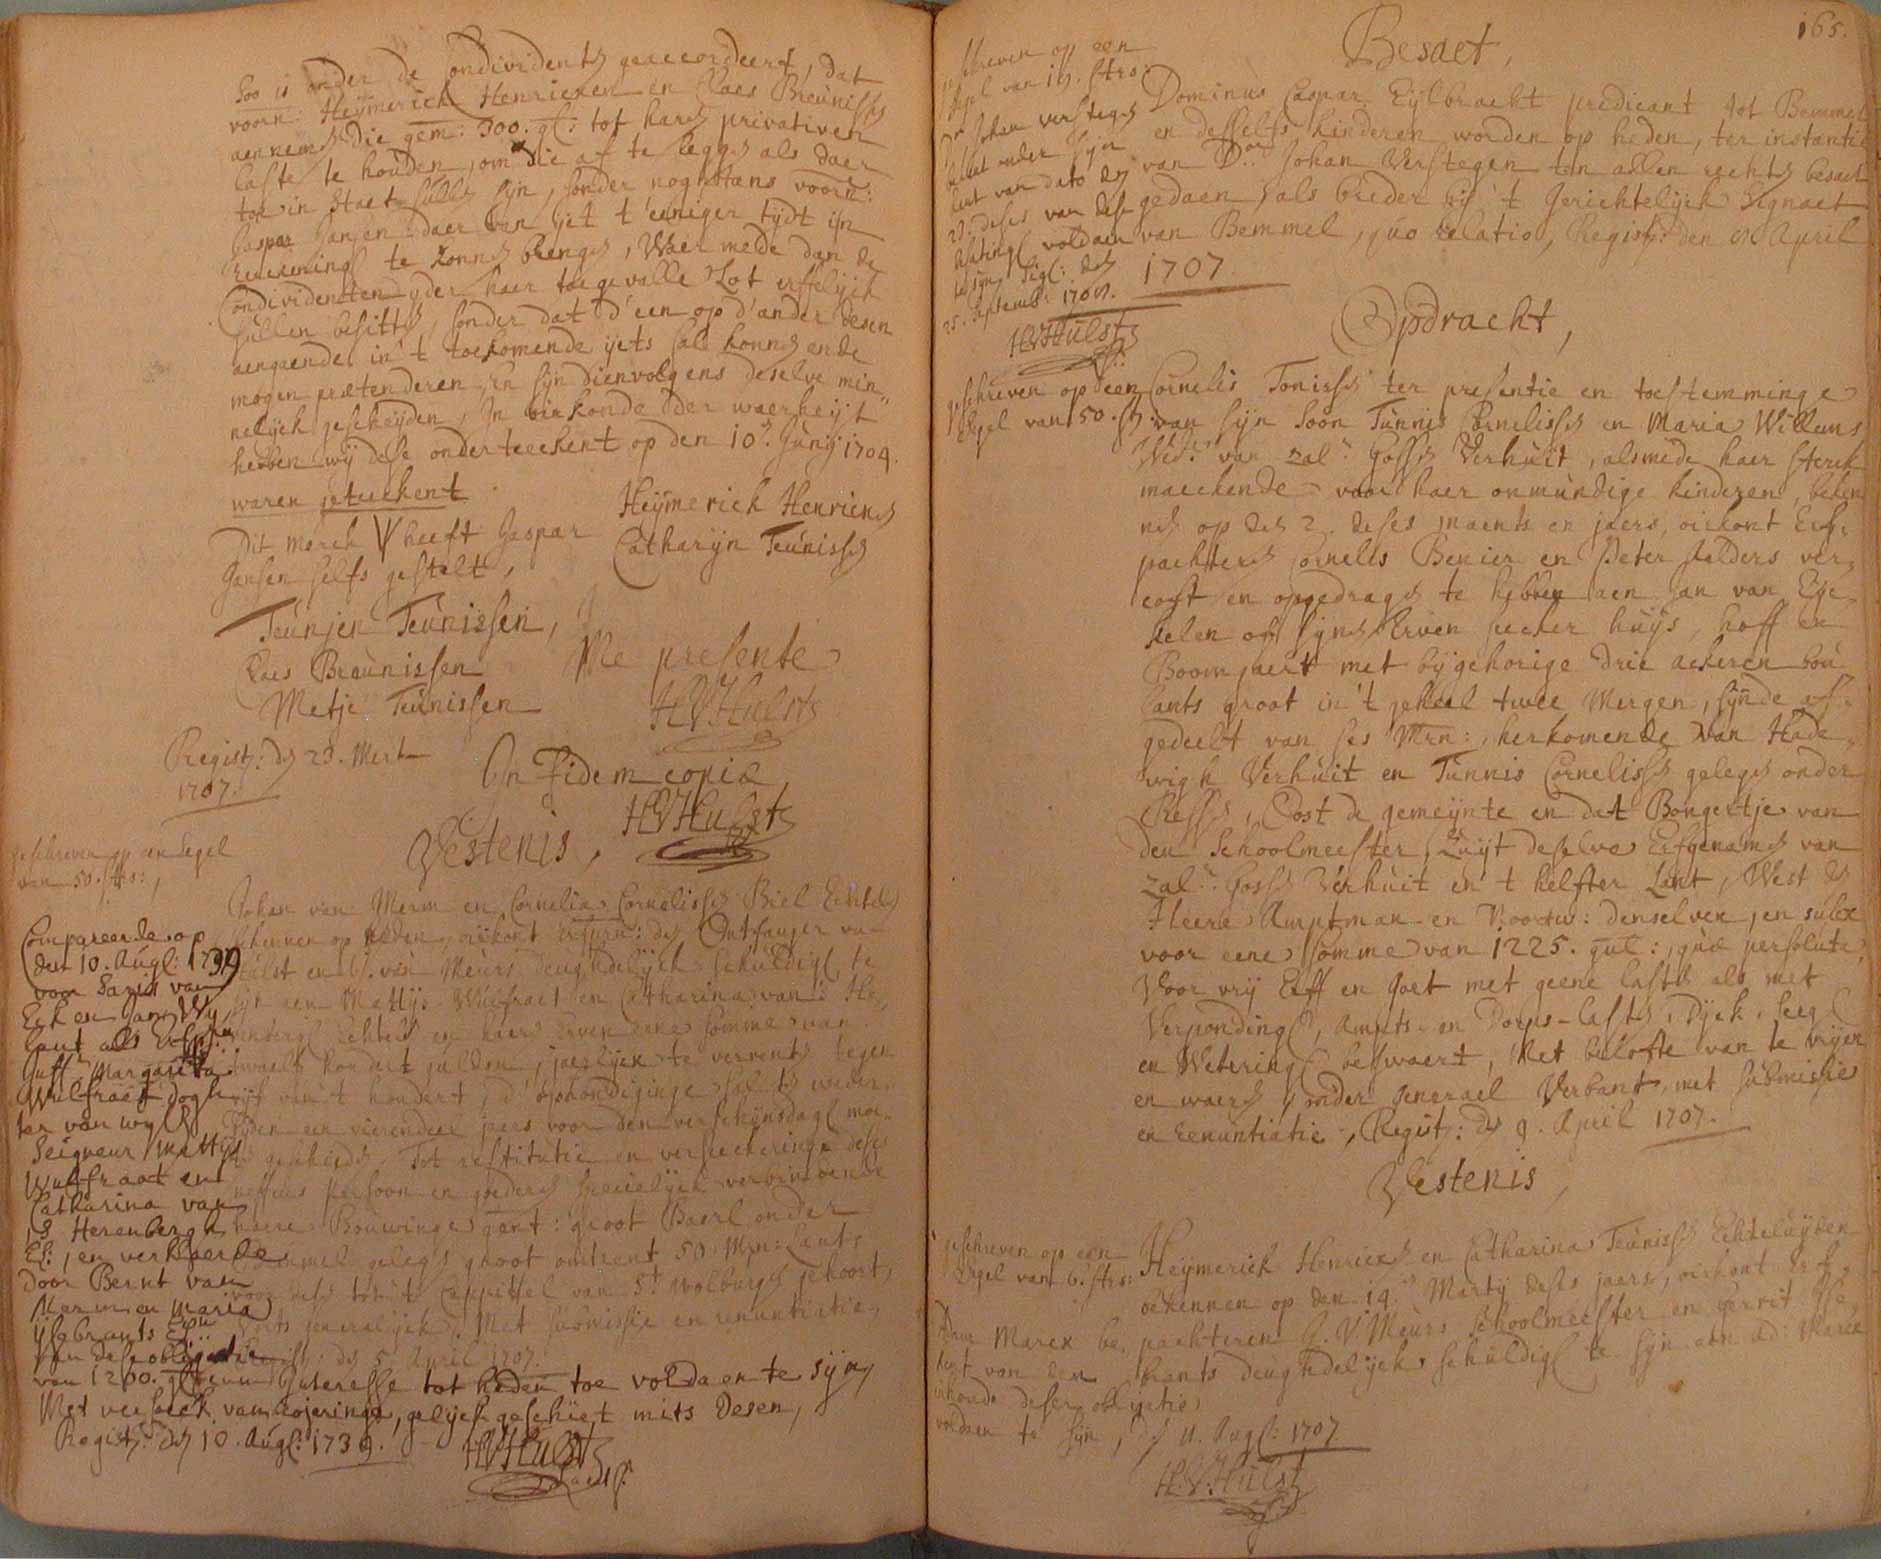 Soo is onder de Condividenten geaccordeert, dat
voorn: Heijmerick Henricxen en Claes Breunissen
aennemen die gem: 300. gl: tot haren privativen
laste te houden, om die af te leggen als daer
toe in staet sullen sijn, sonder noghtans voorn:
Caspar Jansen daer van iet t'eeniger tijdt in
reeckeningh te konnen brengen, Waer mede dan de
Condividenten yder haer toegevalle Lot erffelijck
sullen besitten, sonder dat d'een op d'ander desen
aengaende in't toekomende ijets sal konnen ende
mogen prætenderen, En sijn dienvolgens deselve min„
nelijck gescheijden, In oirkonde der waerheijt
hebben wij dese onderteeckent op den 10. Junij 1704.
waren geteekent
Heijmerick Henricxen
Dit merck heeft Jaspar
Catharijn Teunissen
Jansen selfs gestelt,
Teunjen Teunissen,
Claes Breunissen
Me presente
Metje Teunissen
HVHulst
Regist: den 23. Mert
1707.
In Fidem copiæ
HVHulst
Vestenis,
geschreven op een segel
van 50. strs:,
Johan van Merm en Cornelia Cornelissen Biel Echtel
bekennen op heden, oirkont Erfprn: den Ontfanger van
Hulst en G. van Meurs deughdelijck schuldigh te
sijn aen Mattijs Wulfraet en Catharina van 's He„
renbergh Echtel en haere Erven eene somme van
twaelf hondert gulden, jaerlijcx te verrenten tegen
vijf van't hondert, d'opkondiginge sal te weder
zijden een vierendeel jaers voor den verschijnsdagh moe„
ten geschieden, Tot restitutie en verseeckeringe deses
neffens persoon en goederen specielijck verbindende
haere Bouwinge gent: groot Baerl onder
Bemmel gelegen groot omtrent 50. Mrn: Lants
voor desen tot't Cappittel van St. Wolburgh gehoort,
voorts generalijck, Met submissie en renuntiatie,
Regist: den 5. April 1707.
Compareerde op
den 10. Augl: 1739
voor Sanus van
Eck en Jan Wij
lant als Erfpn:
Juff. Margarita
Wulfraet dogh
ter van wijl
Seigneur Mattijs
Wulfraat en
Catharina van
's Herenbergh
El:, en verklaerde
door Bernt van
Merm en Maria
Ysebrants El:
Van dese obligatie
van 1200. gl: en Interesse tot heden toe voldaen te sijn
Met versoeck van rojeringe, gelijck geschiet mits desen,
Regist: den 10. Augl: 1739.
HVHulst
Landts:
165.
Besaet,
geschreven op een
segel van 15. strs:
Dr. Johan verstegen
bekent onder sijn
hant van dato den
23. deses van dese
besatingh voldaen
te sijn, Sigl: den
25. Septemb: 1707.
HVHulst
Dominus Caspar Eijlbracht predicant tot Bemmel
en desselfs kinderen worden op heden, ter instantie
van Dr. Johan Verstegen ten allen rechten besaet
gedaen, als breder bij 't Gerichtelijck Signaet
van Bemmel, quo relatio, Regist: den 6. April
1707.
Opdracht,
geschreven op een
segel van 50. st:
Cornelis Tonissen ter presentie en toestemminge
van sijn Soon Tunnis Cornelissen en Maria Willems
Wed: van zal: Gossen Verhuit, alsmede haer sterck
maeckende voor haer onmundige kinderen, beken
nen op den 2. deses maents en jaers, oirkont Erf„
pachteren Cornelis Benier en Peter Gelders ver„
coft en opgedragen te hebben aen Jan van Eijc
kelen off sijne Erven seecker huijs, hoff en
Boomgaert met bijgehorige drie ackeren bou
lants groot in 't geheel twee Mergen, sijnde af„
gedeelt van ses Mrn:, herkomende van Hade„
wigh Verhuit en Tunnis Cornelissen gelegen onder
Ressen, Oost de gemeijnte en dat Bongertje van
den Schoolmeester, Zuijt deselve Erfgenamen van
zal: Gossen Verhuit en 't helfter Lant, West den
Heere Amptman en Noortw: denselven, en sulcx
voor eene somme van 1225. gul:, quæ persoluta,
Voor vrij Erff en Goet met geene lasten als met
Verpondingh, Ampts- en Dorps-lasten, Dijck, Seegh
en Weteringh beswaert, Met belofte van te vrijen
en waeren onder generael Verbant, met submissie
en renuntiatie, Regist: den 9. April 1707.
Vestenis,
geschreven op een
segel van 6. strs:
Heijmerick Henricxen en Catharina Teunissen Echteluijden
bekennen op den 19. Martij deses jaers, oirkont Erf„
pachteren G. V. Meurs Schoolmeester en Gerrit
hants deughdelijck schuldigh te sijn aen Ad: Marcx
Adam Marcx be„
kent van den
inhoude deser obligatie
voldaen te sijn, den 11. Augl: 1707
H.V.Hulst